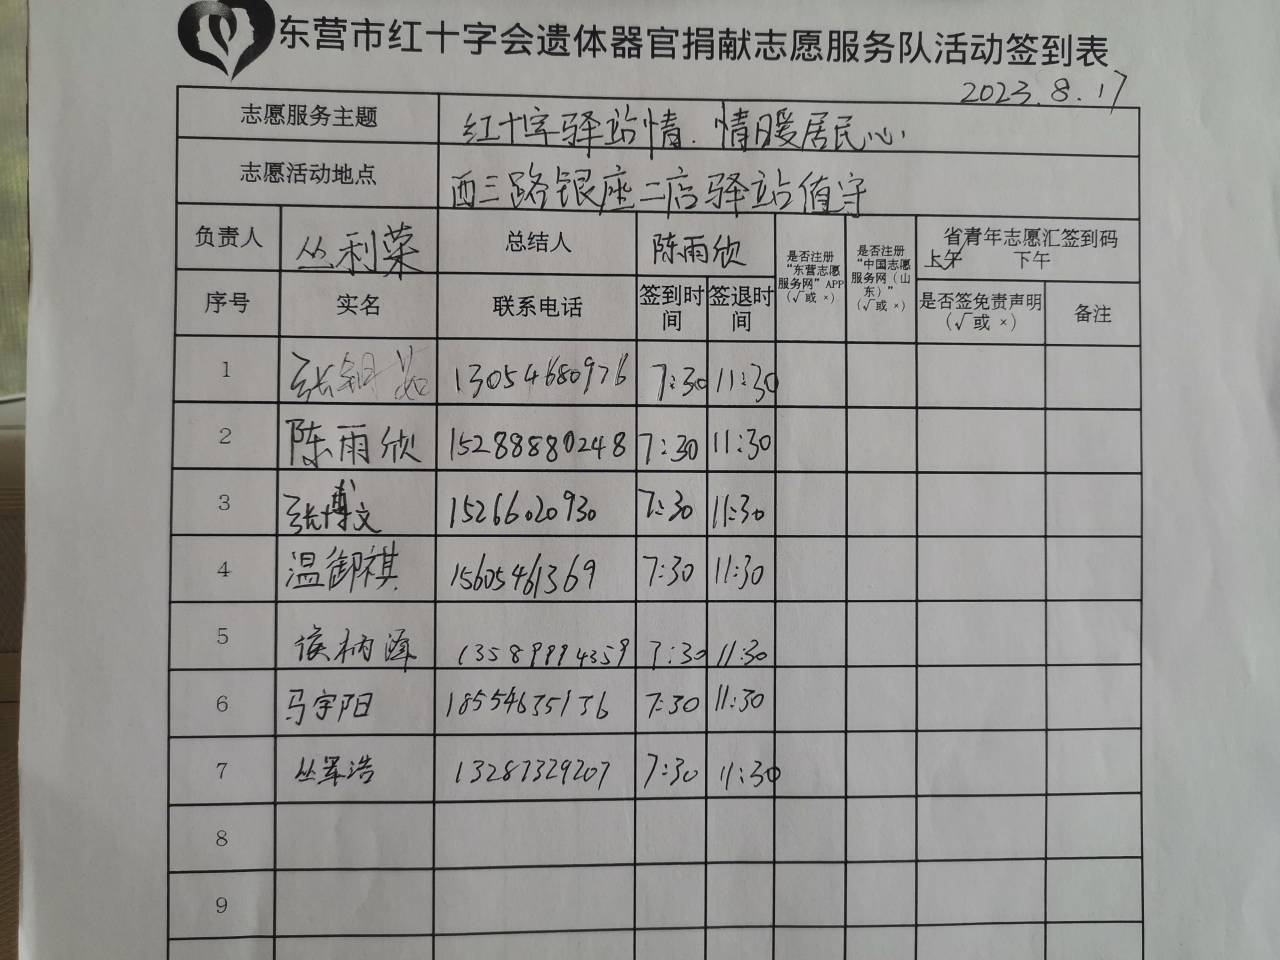 东营市红十字会遗体器官捐献志愿服务队活动签到表
2023.8.17
志愿服务主题 红十字驿站情.情暖居民心.
志愿活动地点 西三路银座二店驿站值守
负责人 丛利荣 总结人 陈雨欣 是否注册“东营志愿服务网”APP(√或×) 是否注册“中国志愿服务网(山东)”(√或×) 省青年志愿汇签到码
上午 下午
序号 实名 联系电话 签到时间 签退时间 是否签免责声明(√或×) 备注
1 张 13054680976 7:30 11:30
2 陈雨欣 15288880248 7:30 11:30
3 张博文 15266020930 7:30 11:30
4 温御祺 15605461369 7:30 11:30
5 侯炳泽 13589994359 7:30 11:30
6 马宇阳 18554635136 7:30 11:30
7 丛军浩 13287329207 7:30 11:30
8
9